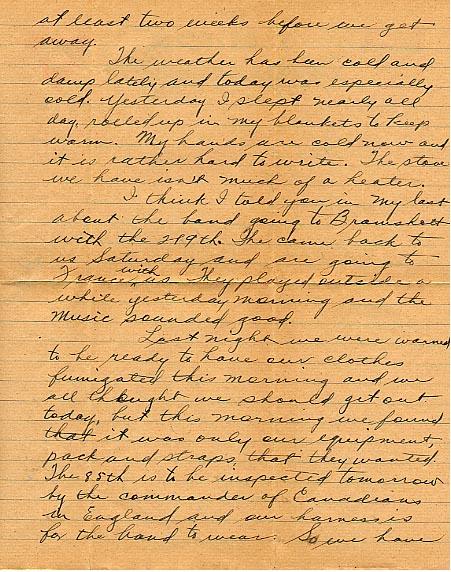 at least two weeks before we get
away.
The weather has been cold and
damp lately and today was especially
cold. Yesterday I slept nearly all
day, rolled up in my blankets to keep
warm. My hands are cold now and
it is rather hard to write. The stove
we have isn't much of a heater.
I think I told you in my last
about the band going to Bramshott
with the 219th. The came back to
us Saturday and are going to
France with us. They played outside a
while yesterday morning and the
music sounded good.
Last night we were warned
to be ready to have our clothes
fumigated this morning and we
all thought we should get out
today, but this morning we found
that it was only our equipment,
pack and straps, that they wanted.
The 85th is to be inspected tomorrow
by the commander of Canadians
in England and our harness is
for the band to wear. So we have